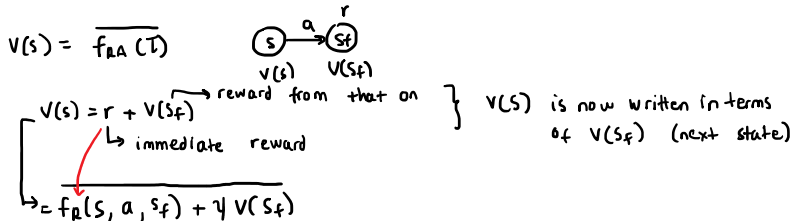 r
a
V(s) = f_RA(τ)
s
s_f
V(s) V(s_f)
reward from that on
V(s) = r + V(s_f)
immediate reward
V(s) is now written in terms
of V(s_f) (next state)
= f_R(s, a, s_f) + γ V(s_f)